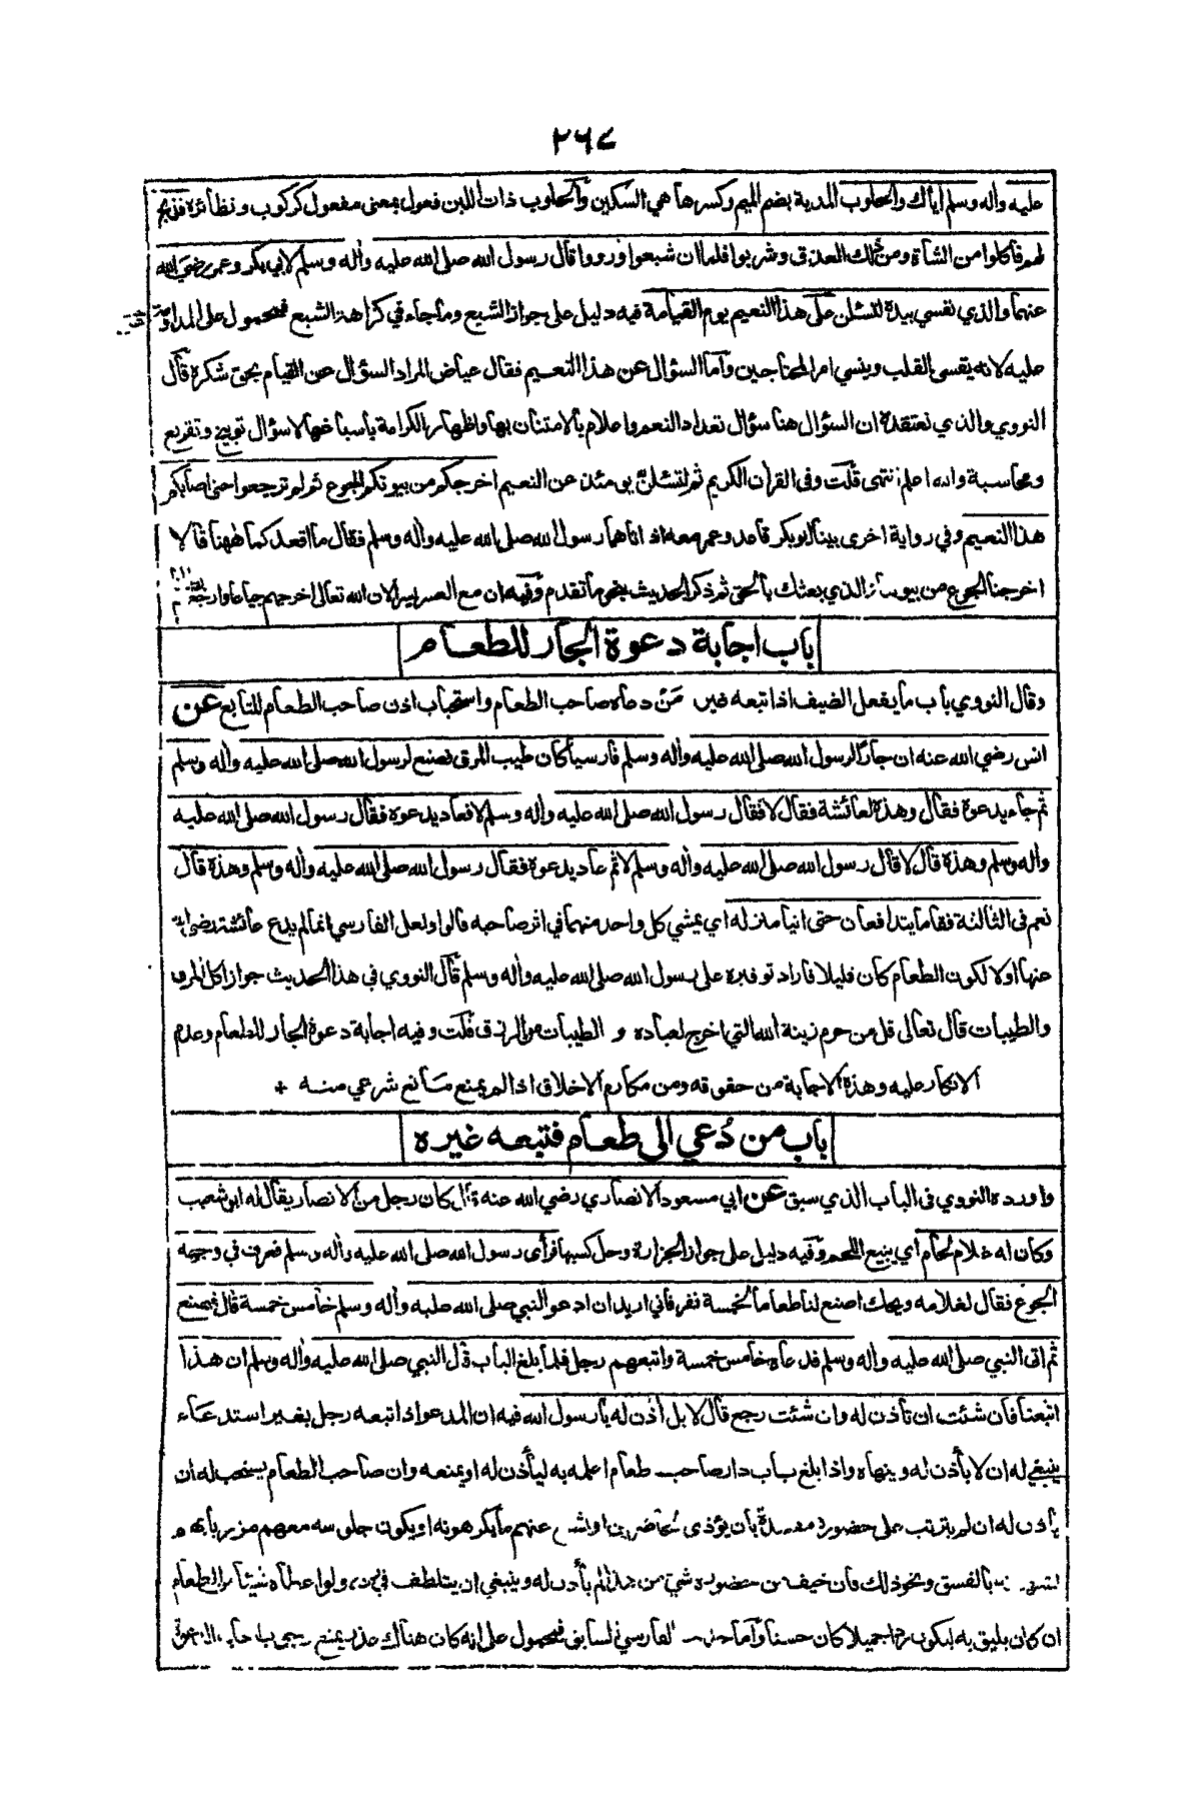 ٢٦٧
عليه وأله وسلم اياك والحلوب المدية بضم الميم وكسرها هي السكين والحلوب ذات اللبن فعول بمعنى مفعول كركوب ونظائره فذبح
لهم فأكلوا من الشاة ومن ذلك العذق وشربوا فلما ان شبعوا ورووا قال رسول الله صلى الله عليه وأله وسلم لابي بكر وعمر رضي الله
عنهما والذي نفسي بيده لتسئلن على هذا النعيم يوم القيامة فيه دليل على جواز الشبع وما جاء في كراهة الشبع فمحمول على المداومة
عليه لانه يقسى القلب وينسي امر المحتاجين وأما السؤال عن هذا النعيم فقال عياض المراد السؤال عن القيام بحق شكره قال
النووي والذي نعتقده ان السؤال هنا سؤال تعداد النعم واعلام بالامتنان بها واظهار الكرامة باسباغها لا سؤال توبيخ وتقريع
ومحاسبة والله اعلم انتهى قلت وفى القرأن الكريم ثم لتسئلن يومئذ عن النعيم اخرجكم من بيوتكم الجوع ثم لم ترجعوا حتى اصابكم
هذا النعيم وفي رواية اخرى بينا ابوبكر قاعد وعمر معه اذ اتاهما رسول الله صلى الله عليه وأله وسلم فقال ما اقعدكما ههنا قالا
اخرجنا الجوع من بيوتنا والذي بعثك بالحق ثم ذكر الحديث بنحو ما تقدم وفيه ان مع العسر يسرا لان الله تعالى اخرجهم جياعا وارجعهم
باب اجابة دعوة الجار للطعام
وقال النووي باب ما يفعل الضيف اذا تبعه غير مَنْ دعاه صاحب الطعام واستحباب اذن صاحب الطعام للتابع عن
انس رضي الله عنه ان جارًا لرسول الله صلى الله عليه وأله وسلم فارسيا كان طيب المرق فصنع لرسول الله صلى الله عليه وأله وسلم
ثم جاء يدعوه فقال وهذه لعائشة فقال لا فقال رسول الله صلى الله عليه وأله وسلم لا فعاد يدعوه فقال رسول الله صلى الله عليه
وأله وسلم وهذه قال لا قال رسول الله صلى الله عليه وأله وسلم لا ثم عاد يدعوه فقال رسول الله صلى الله عليه وأله وسلم وهذه قال
نعم فى الثالثة فقاما يتدافعان حتى اتيا منزله اي يمشي كل واحد منهما في اثر صاحبه قالوا ولعل الفارسي انما لم يدع عائشة رضي الله
عنها اولا لكون الطعام كان قليلا فاراد توفيره على رسول الله صلى الله عليه وأله وسلم قال النووي في هذا الحديث جواز اكل المرق
والطيبات قال تعالى قل من حرم زينة الله التي اخرج لعباده و الطيبات من الرزق قلت وفيه اجابة دعوة الجار للطعام وعدم
الانكار عليه وهذه الاجابة من حقوقه ومن مكارم الاخلاق اذا لم يمنع مانع شرعي منه +
باب من دُعي الى طعام فتبعه غيره
واورده النووي فى الباب الذي سبق عن ابي مسعود الانصاري رضي الله عنه قال كان رجل من الانصار يقال له ابو شعيب
وكان له غلام لحام اي يبيع اللحم وفيه دليل على جواز الجزارة وحل كسبها فرأى رسول الله صلى الله عليه وأله وسلم فعرف في وجهه
الجوع فقال لغلامه ويحك اصنع لنا طعاما لخمسة نفر فأني اريد ان ادعو النبي صلى الله عليه وأله وسلم خامس خمسة قال فصنع
ثم اتى النبي صلى الله عليه وأله وسلم فدعاه خامس خمسة واتبعهم رجل فلما بلغ الباب قال النبي صلى الله عليه وأله وسلم ان هذا
اتبعنا فان شئت ان تأذن له وان شئت رجع قال لا بل أذن له يا رسول الله فيه ان المدعو اذا تبعه رجل بغير استدعاء
ينبغي له ان لا يأذن له وينهاه واذا بلغ باب دار صاحب طعام اعلمه به ليأذن له او يمنعه وان صاحب الطعام يستحب له ان
يأذن له ان لم يترتب على حضوره مفسدة بان يؤذى الحاضرين او يشيع عنهم ما يكرهونه او يكون جلوسه معهم مزريا بهم
بالفسق ونحو ذلك فان خيف من حضوره شيء من هذا لم يأذن له وينبغي ان يتلطف في رده ولو اعطاه شيئا من الطعام
ان كان يليق به ليكون ردا جميلا كان حسنا وأما حديث الفارسي السابق فمحمول على انه كان هناك عذر يمنع وجوب اجابة الدعوة